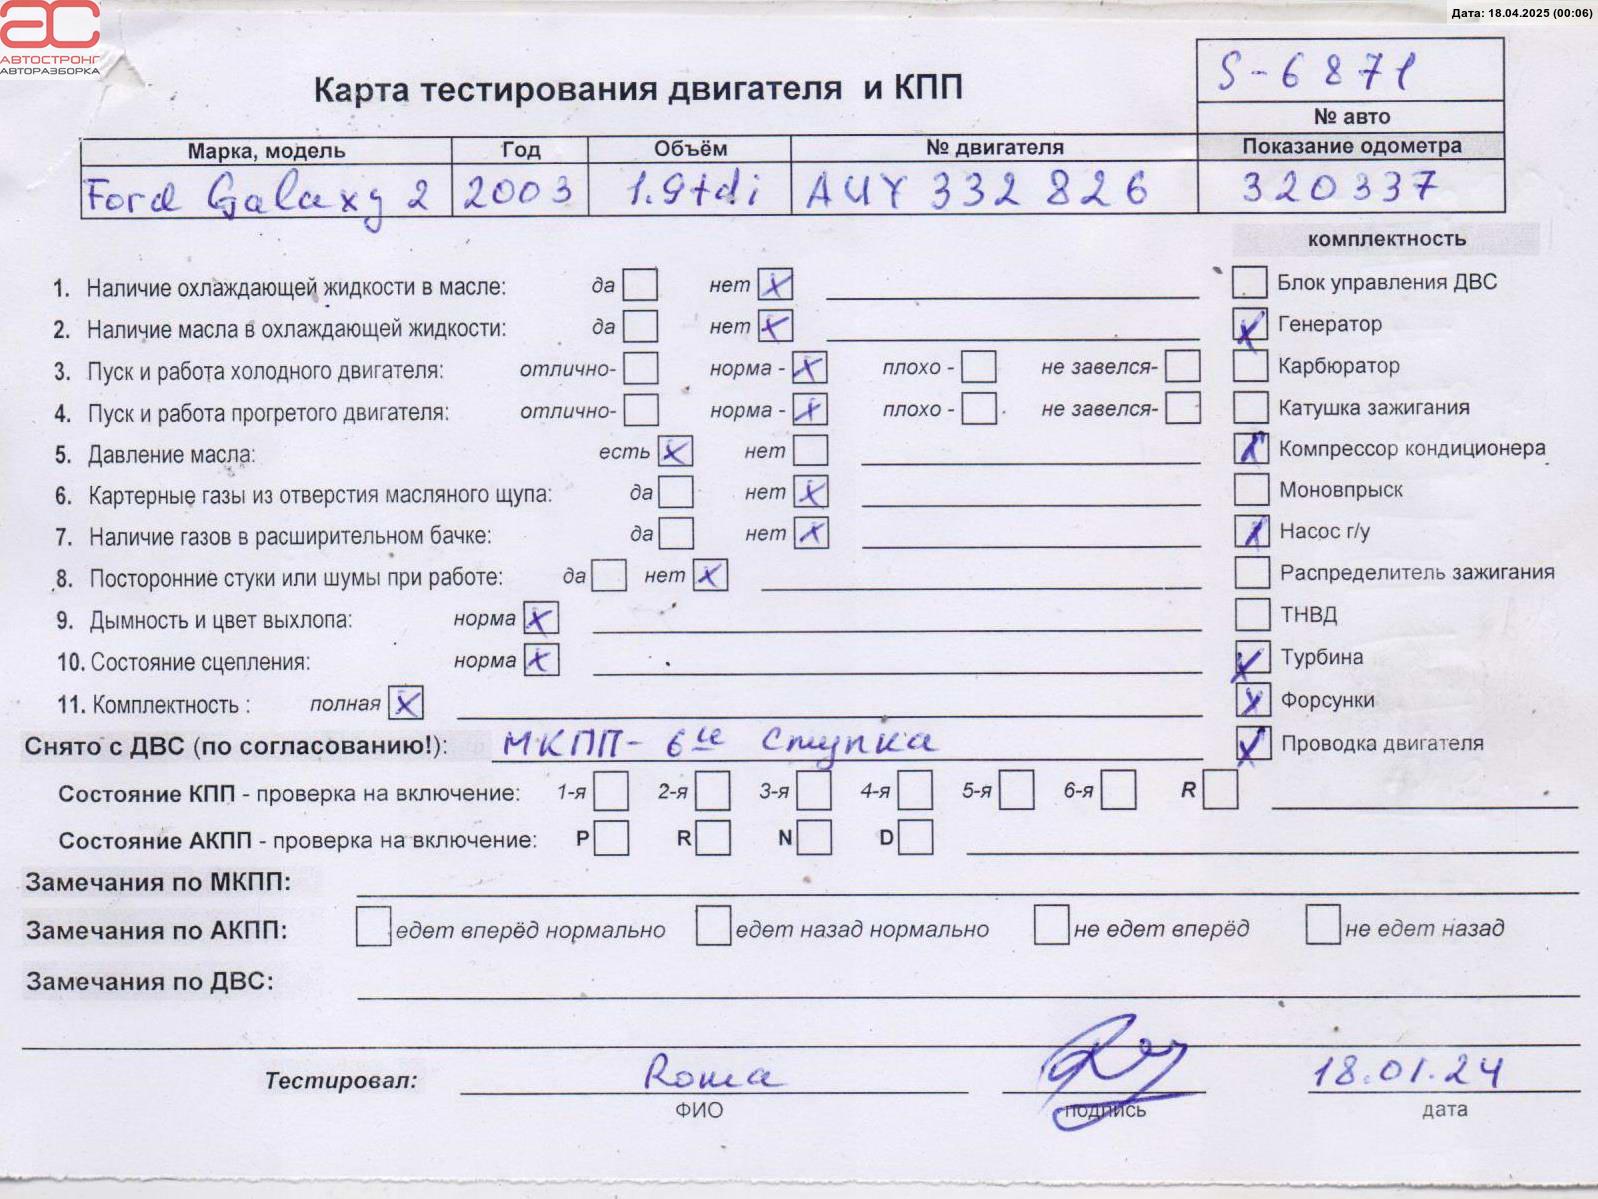 Дата: 18.04.2025 (00:06)
АС
АВТОСТРОНГ
АВТОРАЗБОРКА
Карта тестирования двигателя и КПП
S-6871
№ авто
Марка, модель Год Объём № двигателя Показание одометра
Ford Galaxy 2 2003 1.9tdi AUY 332 826 320337
комплектность
1. Наличие охлаждающей жидкости в масле: да нет X
Блок управления ДВС
2. Наличие масла в охлаждающей жидкости: да нет X
X Генератор
3. Пуск и работа холодного двигателя: отлично- норма - X плохо - не завелся-
Карбюратор
4. Пуск и работа прогретого двигателя: отлично- норма - X плохо - не завелся-
Катушка зажигания
5. Давление масла: есть X нет
X Компрессор кондиционера
6. Картерные газы из отверстия масляного щупа: да нет X
Моновпрыск
7. Наличие газов в расширительном бачке: да нет X
X Насос г/у
8. Посторонние стуки или шумы при работе: да нет X
Распределитель зажигания
9. Дымность и цвет выхлопа: норма X
ТНВД
10. Состояние сцепления: норма X
X Турбина
11. Комплектность : полная X
X Форсунки
Снято с ДВС (по согласованию!): МКПП- 6ие ступка
X Проводка двигателя
Состояние КПП - проверка на включение: 1-я 2-я 3-я 4-я 5-я 6-я R
Состояние АКПП - проверка на включение: P R N D
Замечания по МКПП:
Замечания по АКПП: едет вперёд нормально едет назад нормально не едет вперёд не едет назад
Замечания по ДВС:
Тестировал: Roma 18.01.24
ФИО подпись дата